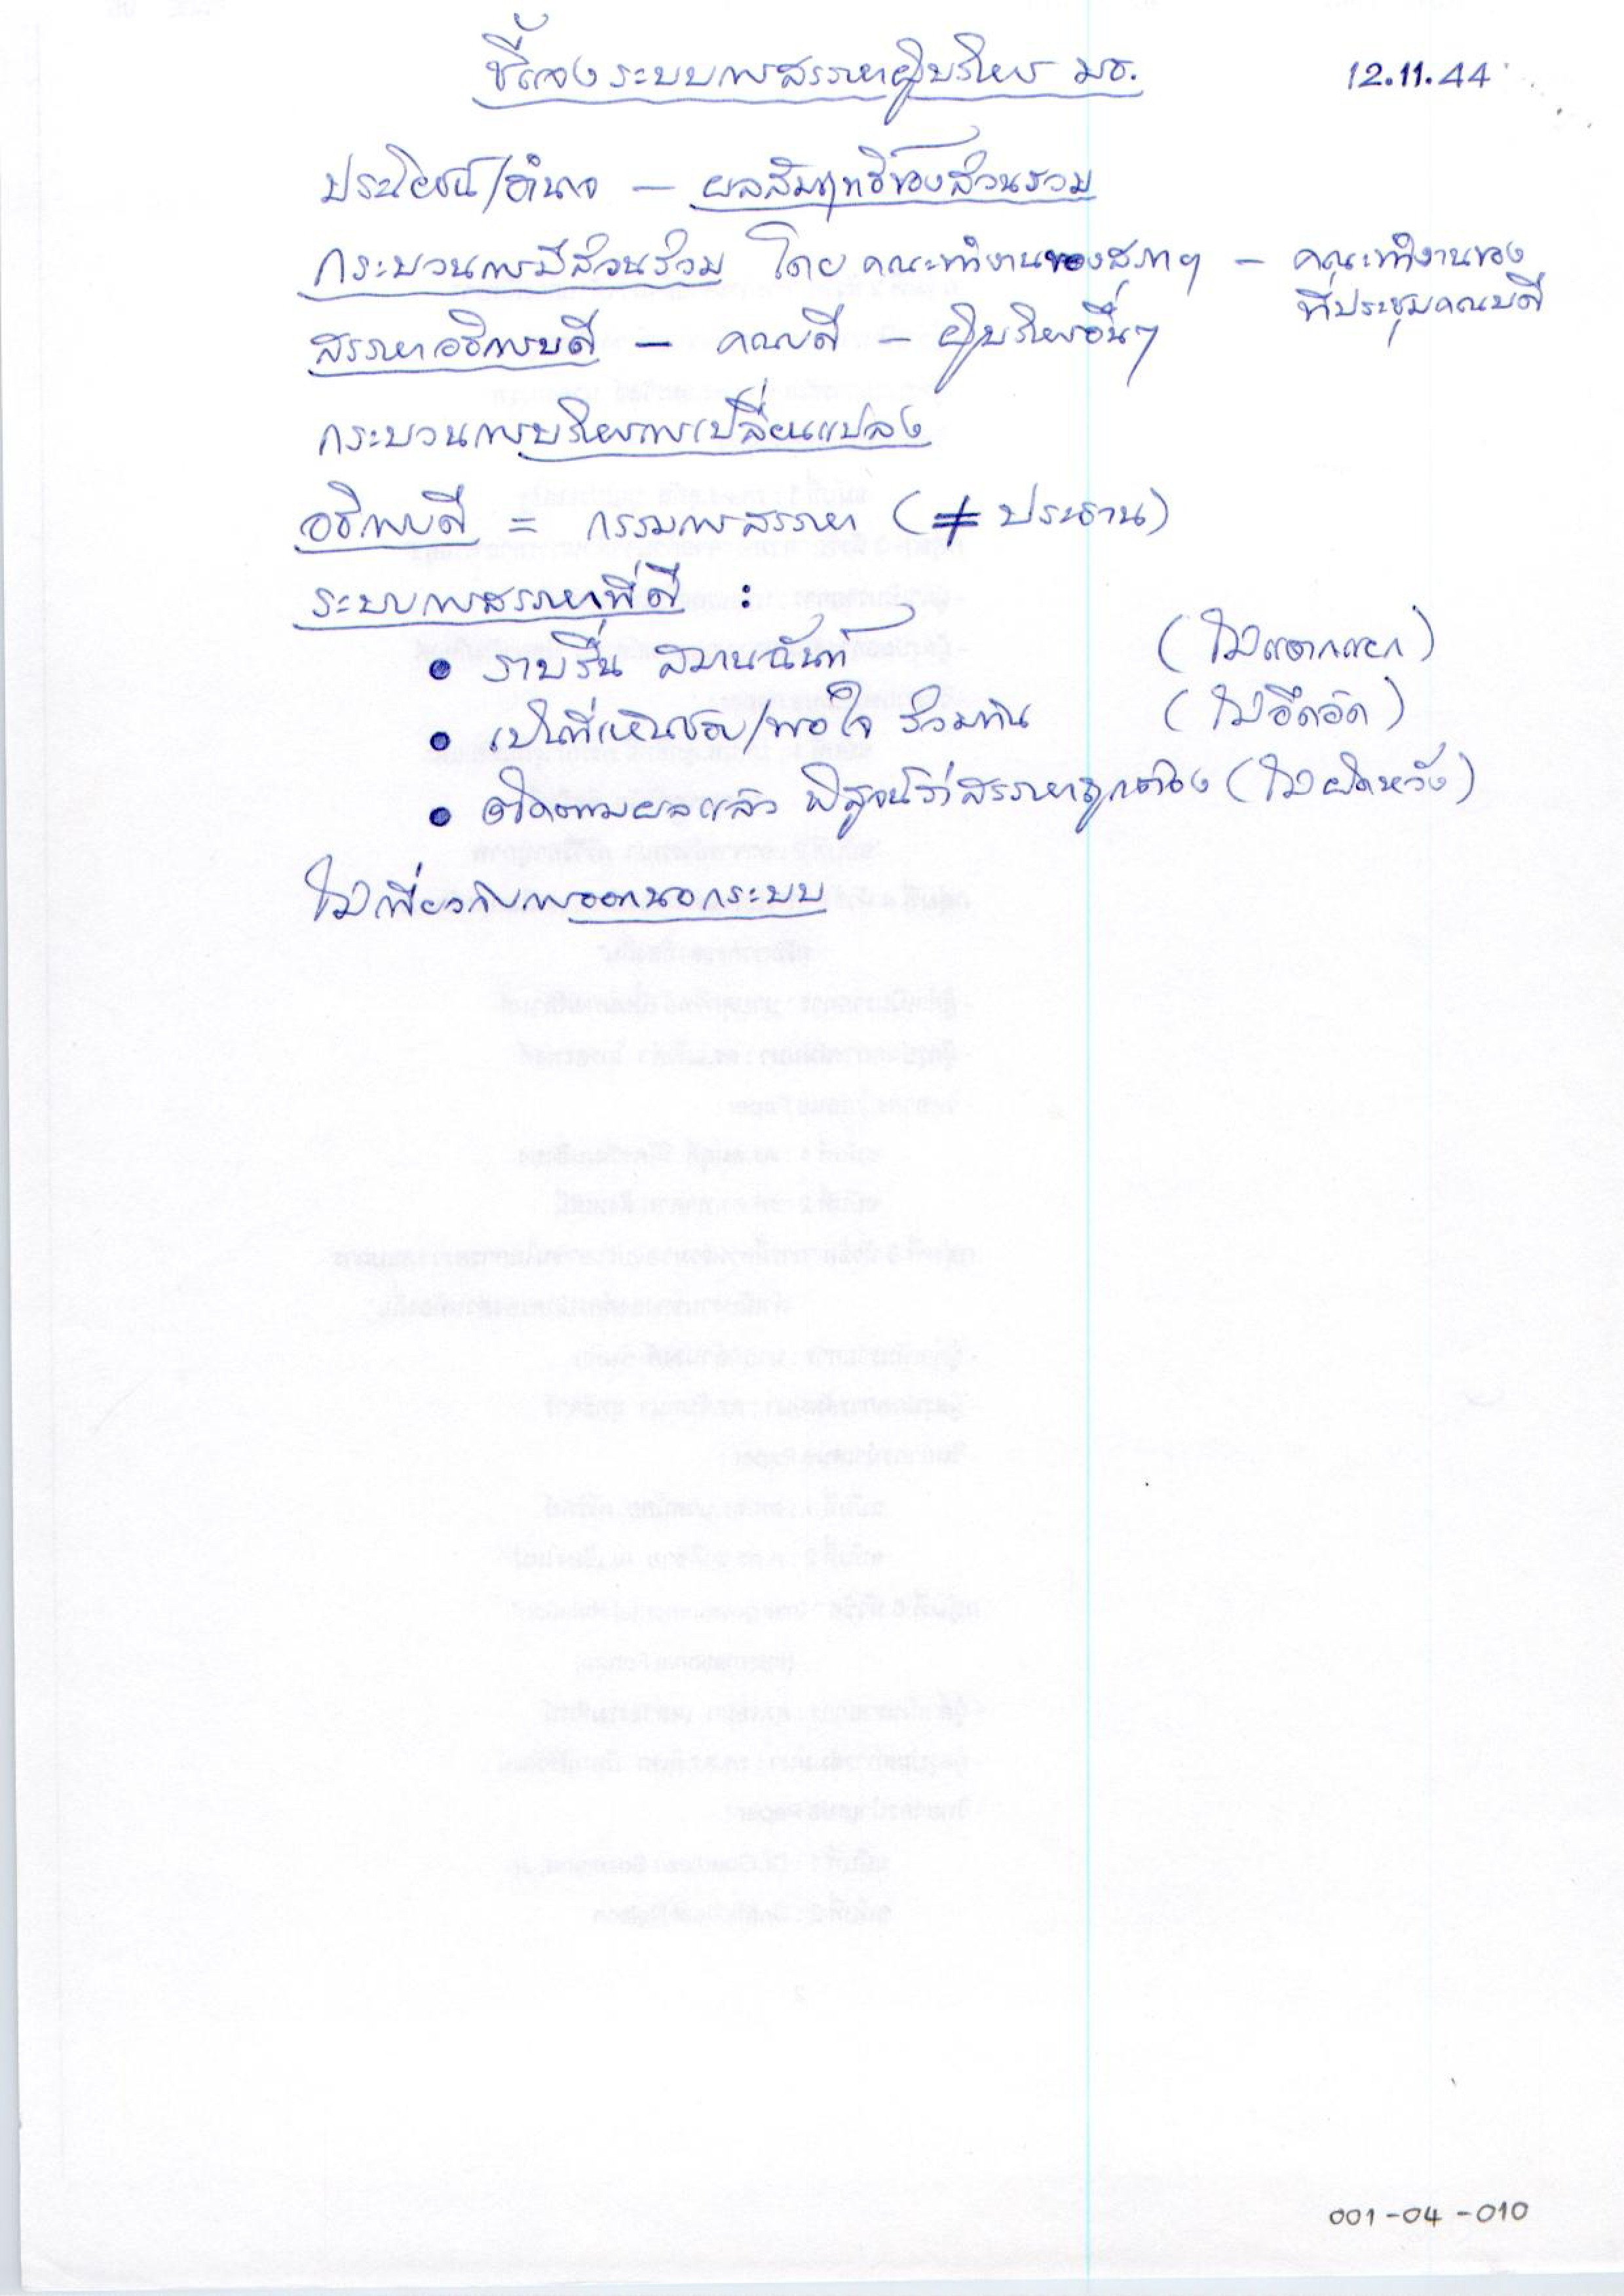 ชี้แจงระบบการสรรหาผู้บริหาร มช. 12.11.44
ประโยชน์/อำนาจ — ผลสัมฤทธิ์ของส่วนรวม
กระบวนการมีส่วนร่วม โดย คณะทำงานของสภาฯ – คณะทำงานของ
ที่ประชุมคณบดี
สรรหาอธิการบดี – คณบดี – ผู้บริหารอื่นๆ
กระบวนการบริหารการเปลี่ยนแปลง
อธิการบดี = กรรมการสรรหา (≠ ประธาน)
ระบบการสรรหาที่ดี :
• ราบรื่น สมานฉันท์ (ไม่แตกแยก)
• เป็นที่เห็นชอบ/พอใจ ร่วมกัน (ไม่อึดอัด)
• ติดตามผลแล้ว พิสูจน์ว่าสรรหาถูกต้อง (ไม่ผิดหวัง)
ไม่เกี่ยวกับการออกนอกระบบ
001-04-010